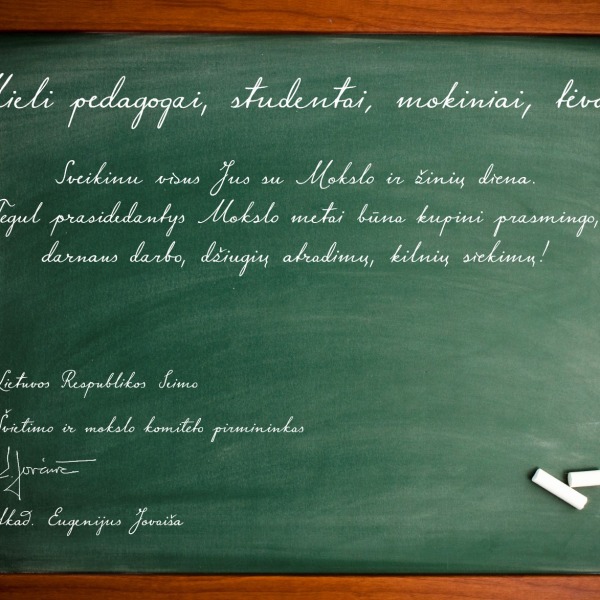 Mieli pedagogai, studentai, mokiniai, tėva
Sveikinu visus Jus su Mokslo ir žinių diena.
Tegul prasidedantys Mokslo metai būna kupini prasmingo,
darnaus darbo, džiugių atradimų, kilnių siekimų!
Lietuvos Respublikos Seimo
Švietimo ir mokslo komiteto pirmininkas
Akad. Eugenijus Jovaiša